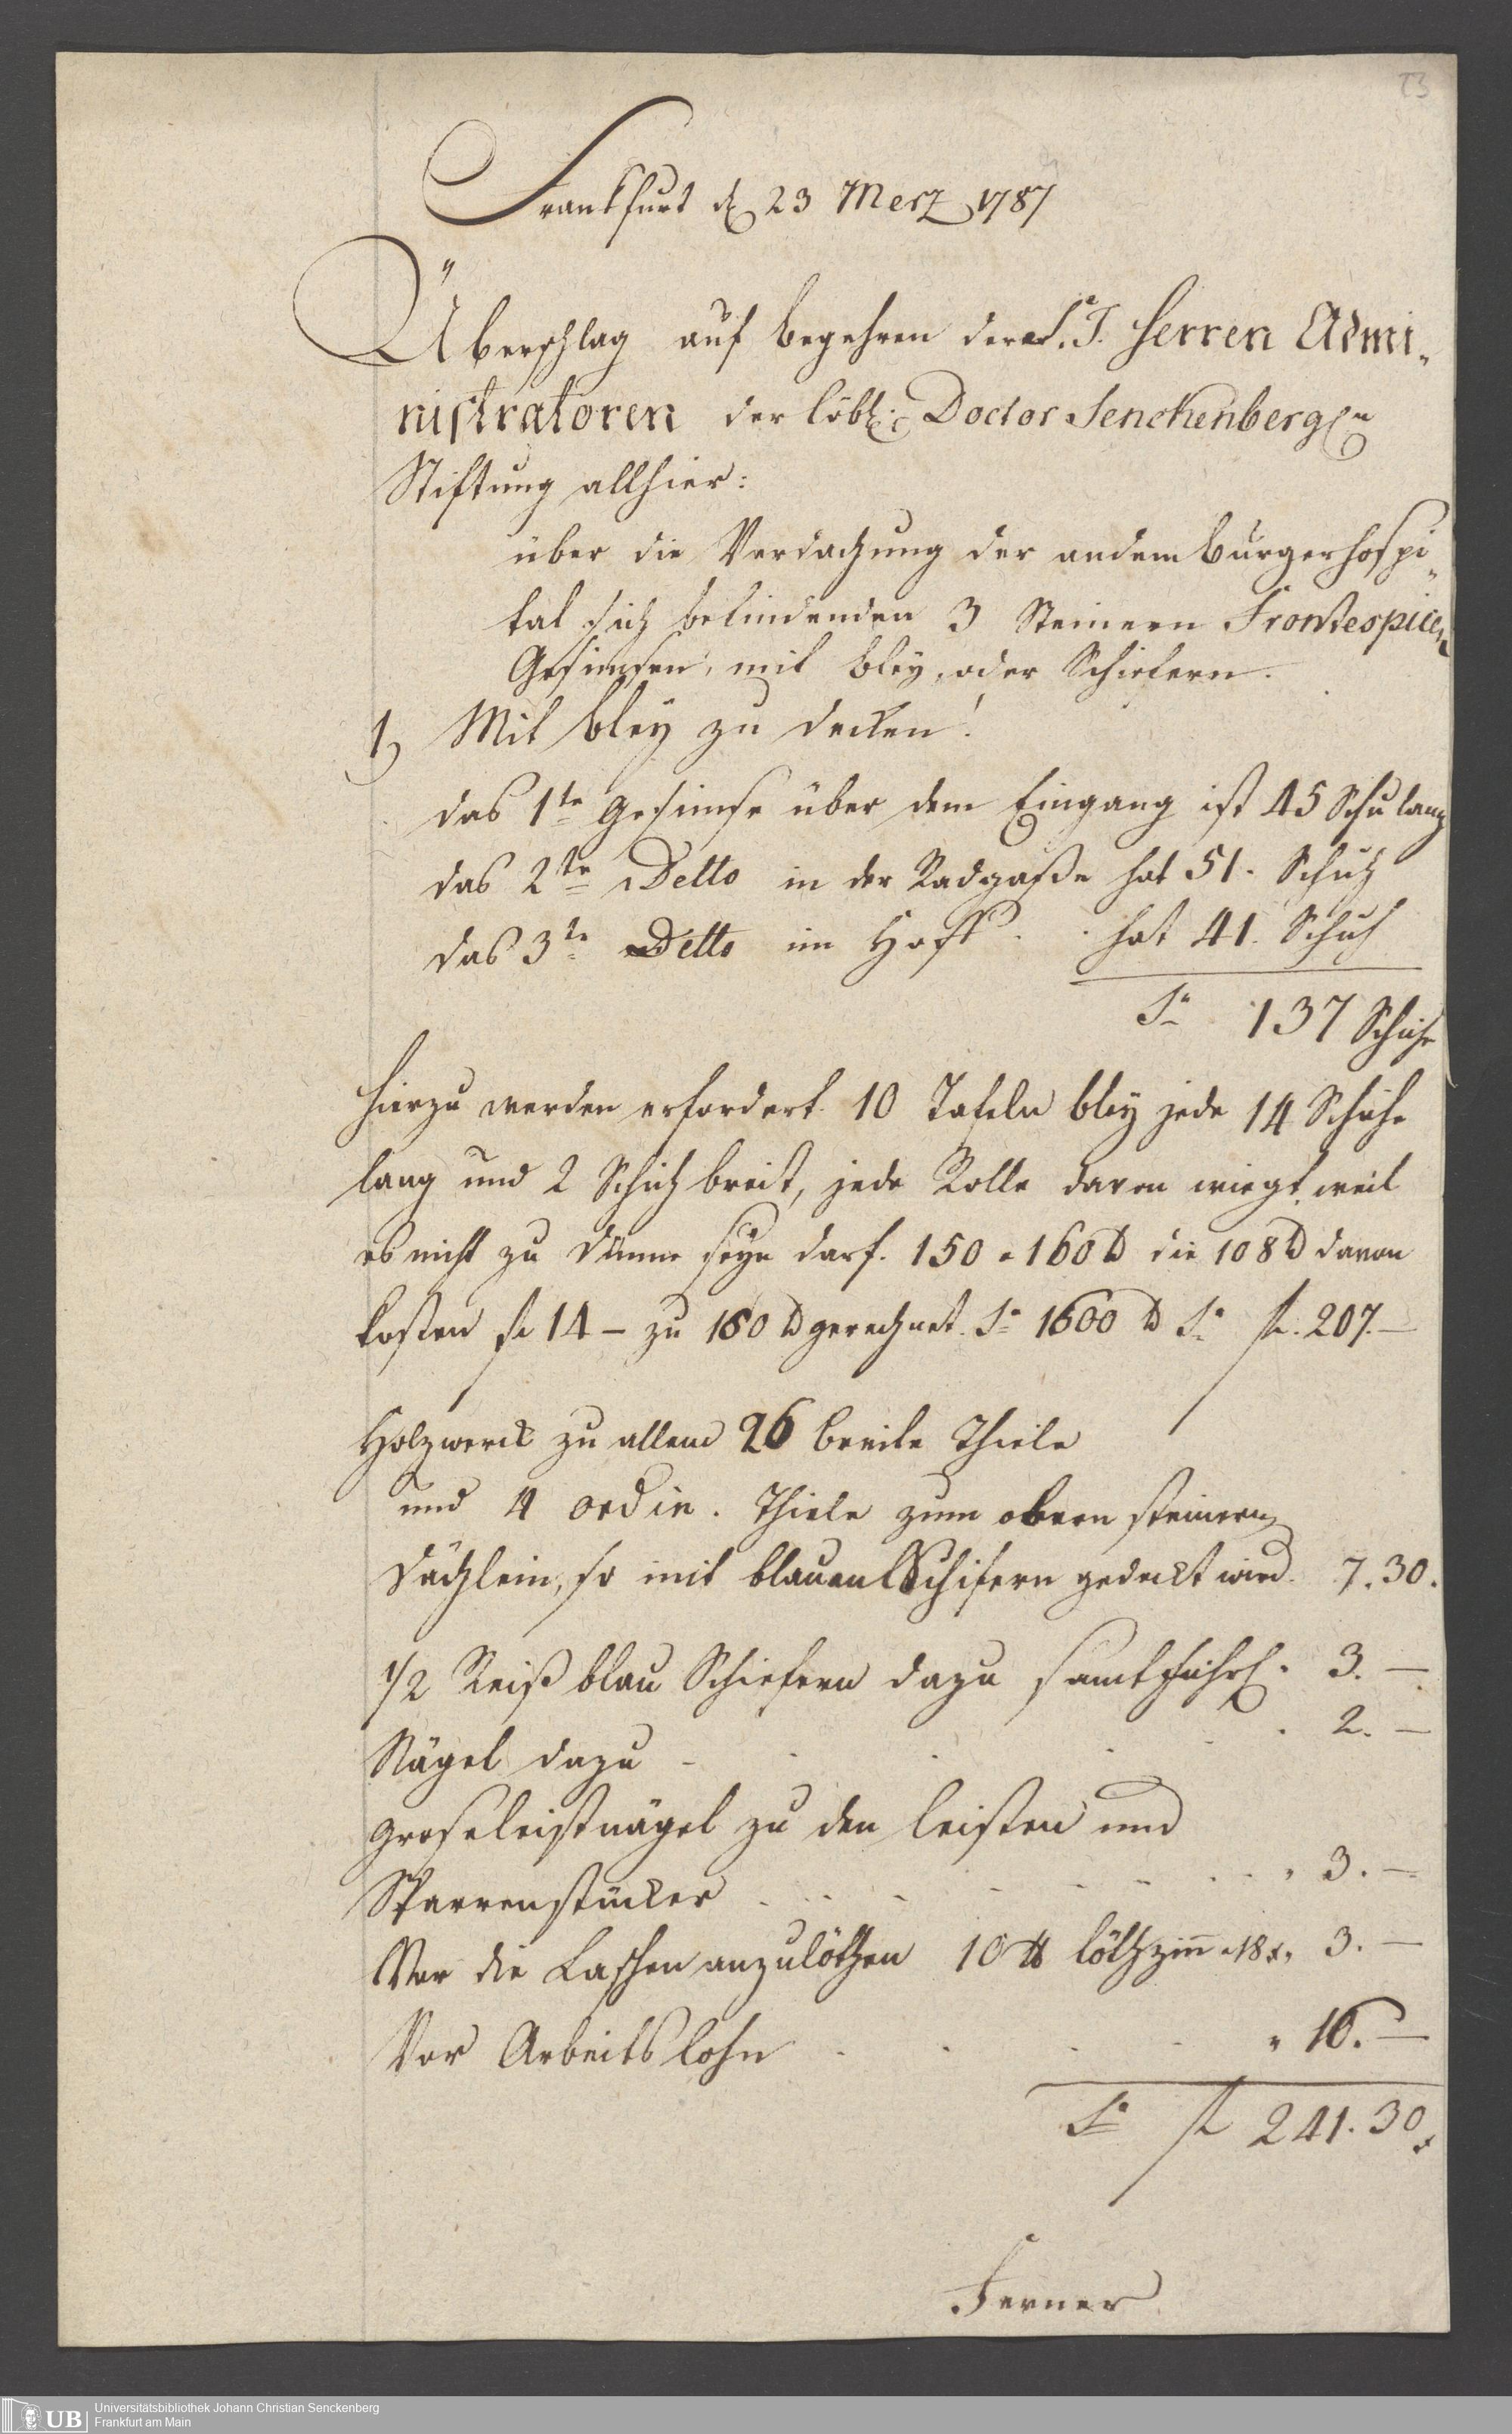 23
Frankfurt d 23 Merz 1787
Überschlag auf begehren derer S. T. Herren Admi„
nistratoren der löbl: Doctor Senckenbergen
Stiftung allhier:
über die Verdachung der an dem burgerhospi„
tal sich befindenden 3 Steinern Frontespicen
Gesimsen, mit bley, oder Schiefern.
1) Mit bley zu decken!
das 1te Gesimse über dem Eingang ist 45 Schu lang
das 2te Detto in der Radgaße hat 51. Schuh
das 3te Detto im Hoff . . hat 41. Schuh
Sa 137 Schuhe
hierzu werden erfordert 10 Tafeln bley jede 14 Schuhe
lang und 2 Schuh breit, jede Rolle davon wiegt weil
es nicht zu dünne seyn darf. 150 a 160 ℔ die 108 ℔ davon
kosten fl 14 – zu 160 ℔ gerechnet. Sa 1600 ℔ Sa fl. 207. —
Holzwerck zu allem 26 breite Thiele
und 4 ordin. Thiele zum obern steinern
Dächlein, so mit blauen Schifern gedeckt wird. 7. 30.
1/2 Reiß blau Schiefern dazu samt fuhrl. 3. —
Nägel dazu - . . . . 2. —
grose leistnägel zu den leisten und
Sparrenstücker . . . . . . „ 3. —
Vor die Laschen anzulöthen 10 ℔ löthzinn a 18 x „ 3. —
Vor Arbeitslohn . . . . „ 16. —
Sa fl 241. 30 x
Ferner
UB
Universitätsbibliothek Johann Christian Senckenberg
Frankfurt am Main